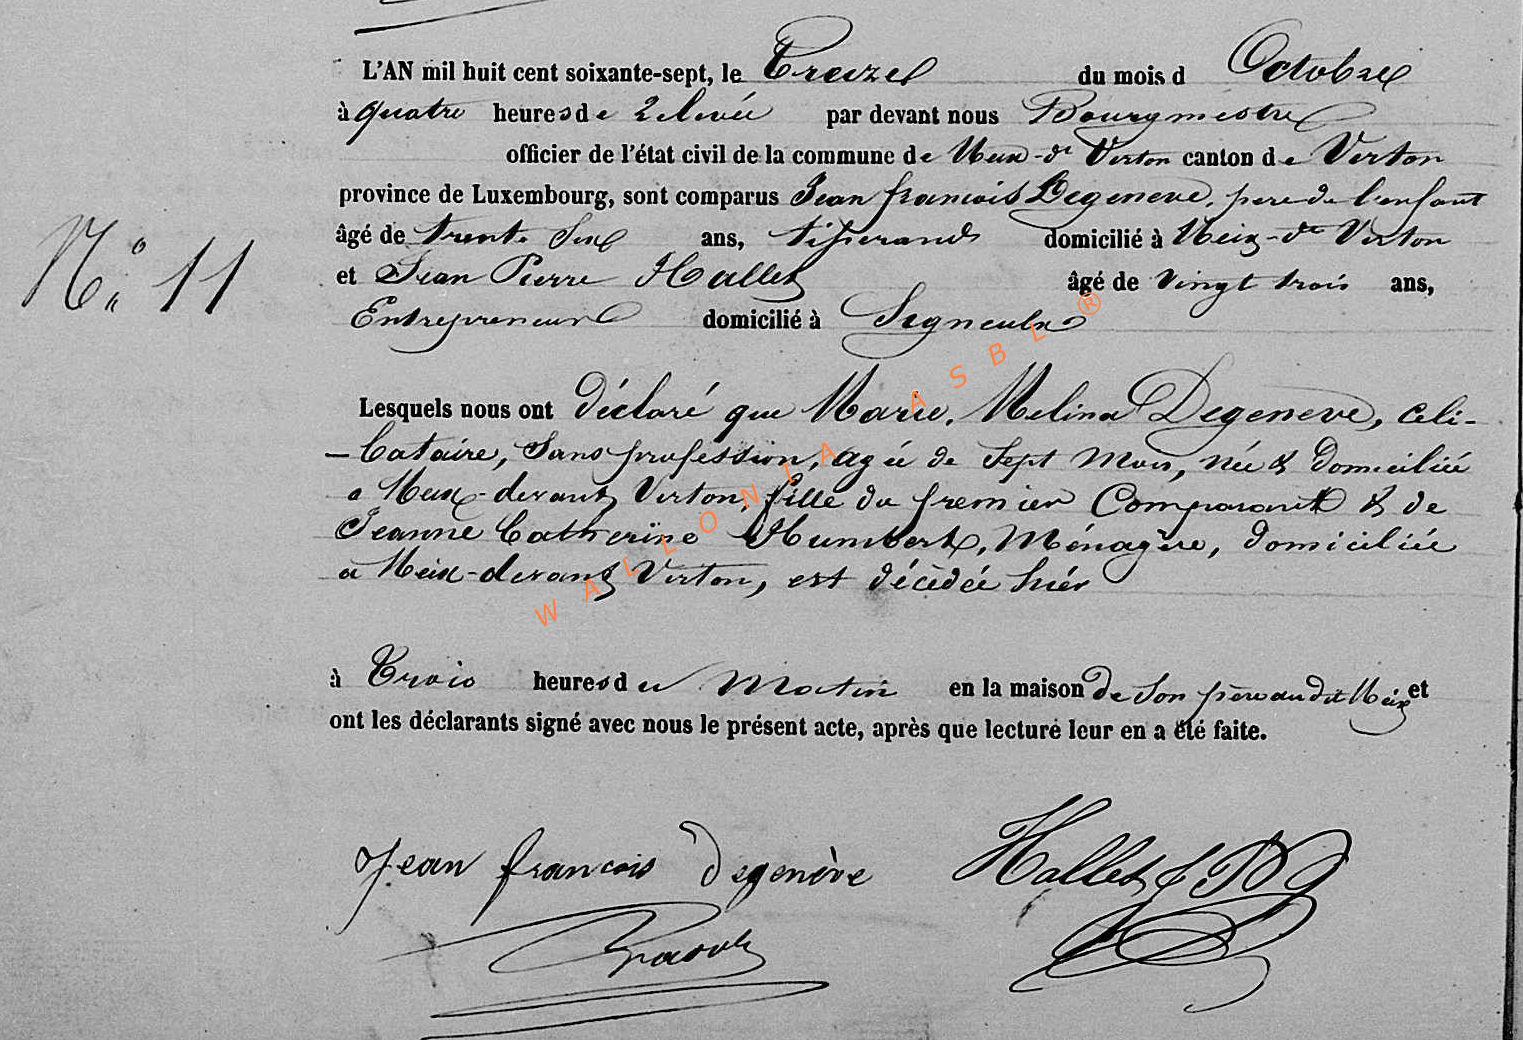 L'AN mil huit cent soixante-sept, le Treize du mois d Octobre
à quatre heures de relevée par devant nous Bourgmestre
officier de l'état civil de la commune de Meix-dt Virton canton de Virton
province de Luxembourg, sont comparus Jean françois Degeneve, pere de l'enfant
âgé de trente Six ans, tisserand domicilié à Meix-dt Virton
N° 11
et Jean Pierre Hallet âgé de vingt trois ans,
Entrepreneur domicilié à Signeulx
Lesquels nous ont déclaré que Marie, Melina Degeneve, celi-
-bataire, Sans profession, agée de Sept Mois, née & domiciliée
a Meix-devant Virton, fille du premier Comparant & de
Jeanne Catherine Humbert, Ménagère, domiciliée
a Meix-devant Virton, est décédée hiér
à Trois heures du Matin en la maison de Son père audit Meix et
ont les déclarants signé avec nous le présent acte, après que lecture leur en a été faite.
Jean françois Degenève Hallet J P
WALLONIA ASBL ®